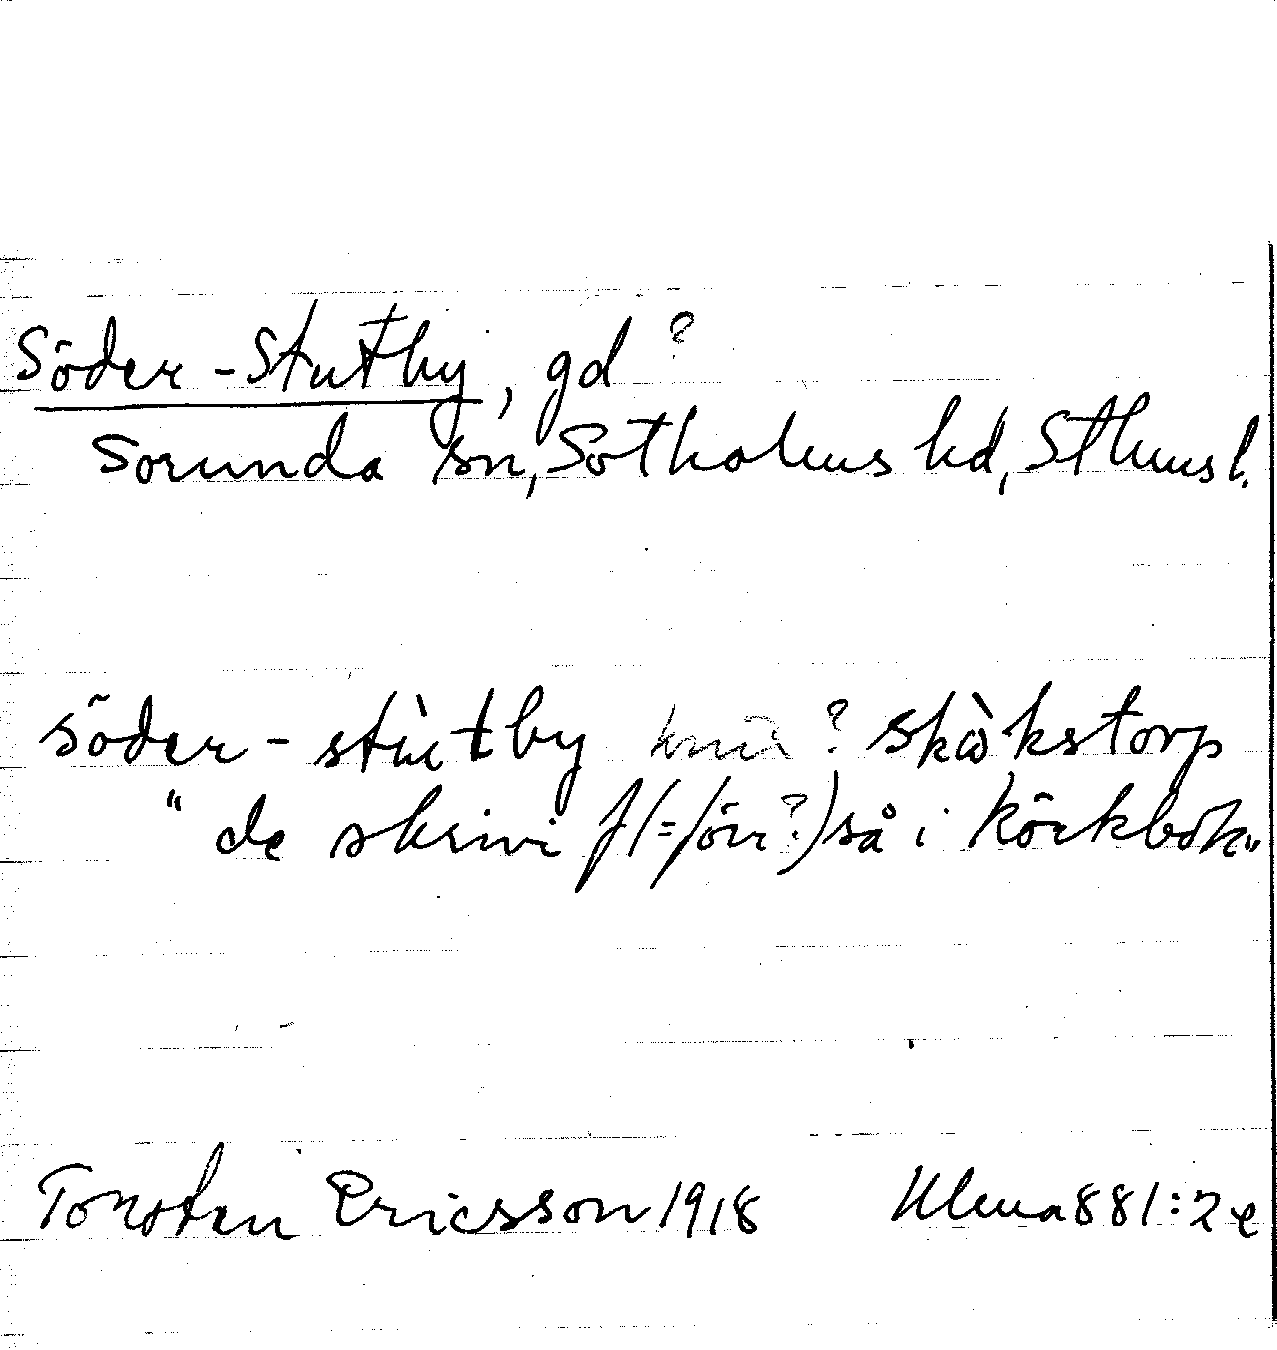 Söder-Stutby, gd ?
Sorunda sn, Sotholms hd, Sthms l.
söder-stùtby ? skàkstorp
"de skrivi f(=för?) så i körkbok"
Torsten Ericsson 1918 Ulma 881:2 e